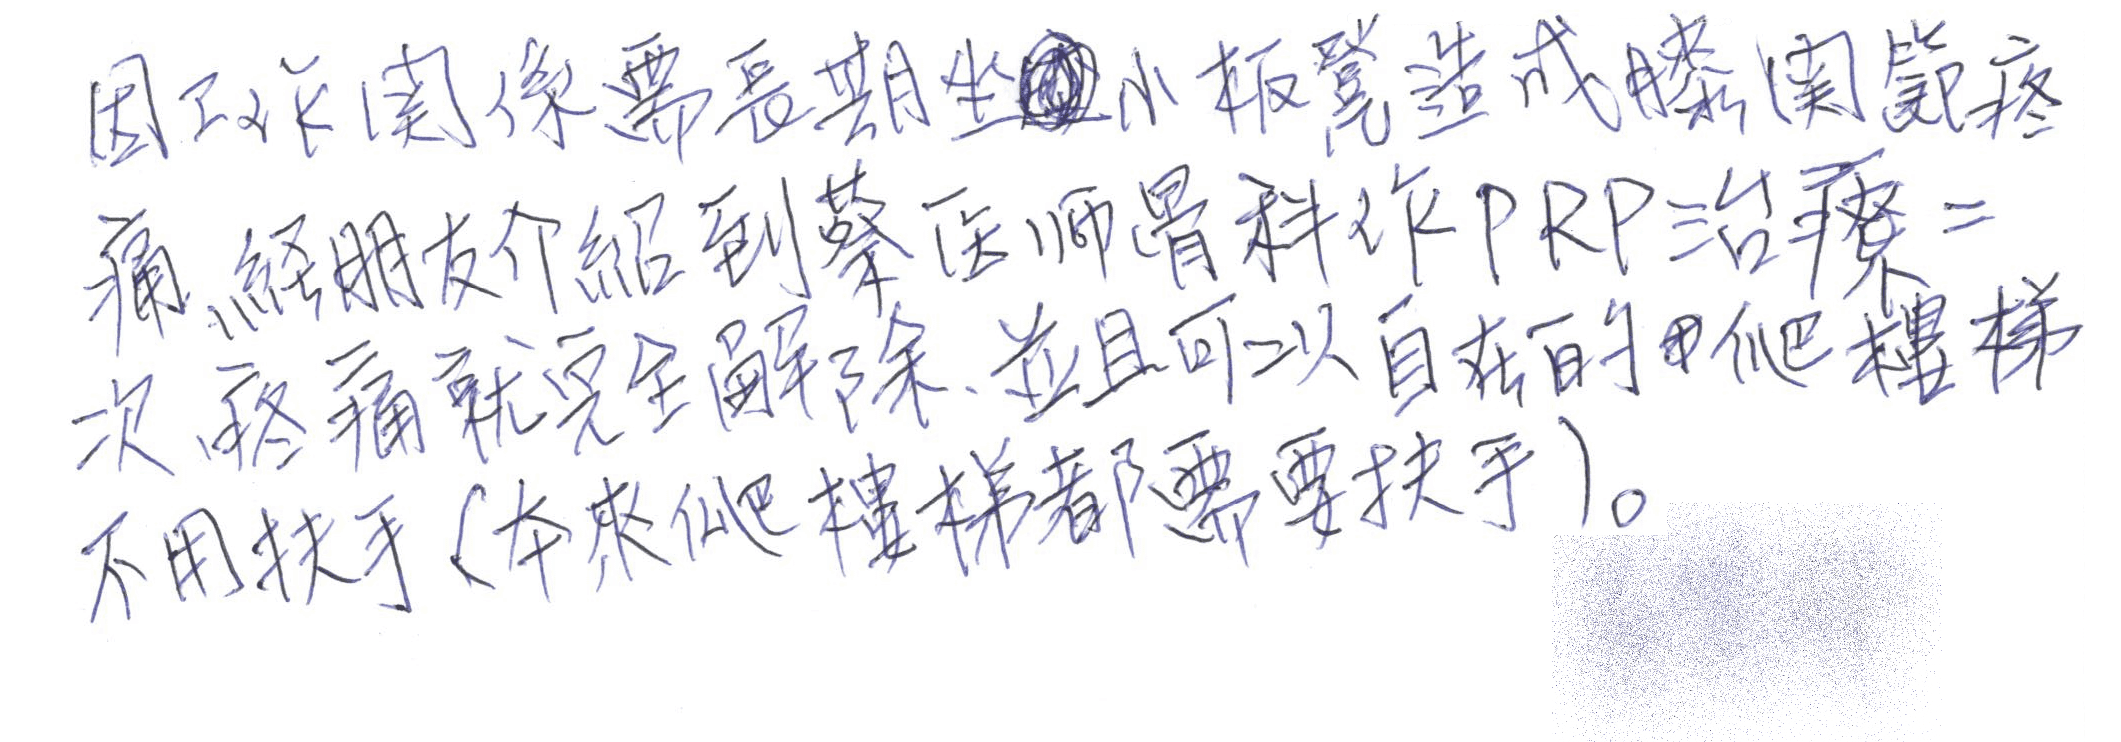 因工作関係需長期坐小板凳造成膝関節疼
痛、経朋友介紹到蔡医师骨科作PRP治療二
次疼痛就完全解除、並且可以自在的爬樓梯
不用扶手(本來爬樓梯都需要扶手)。